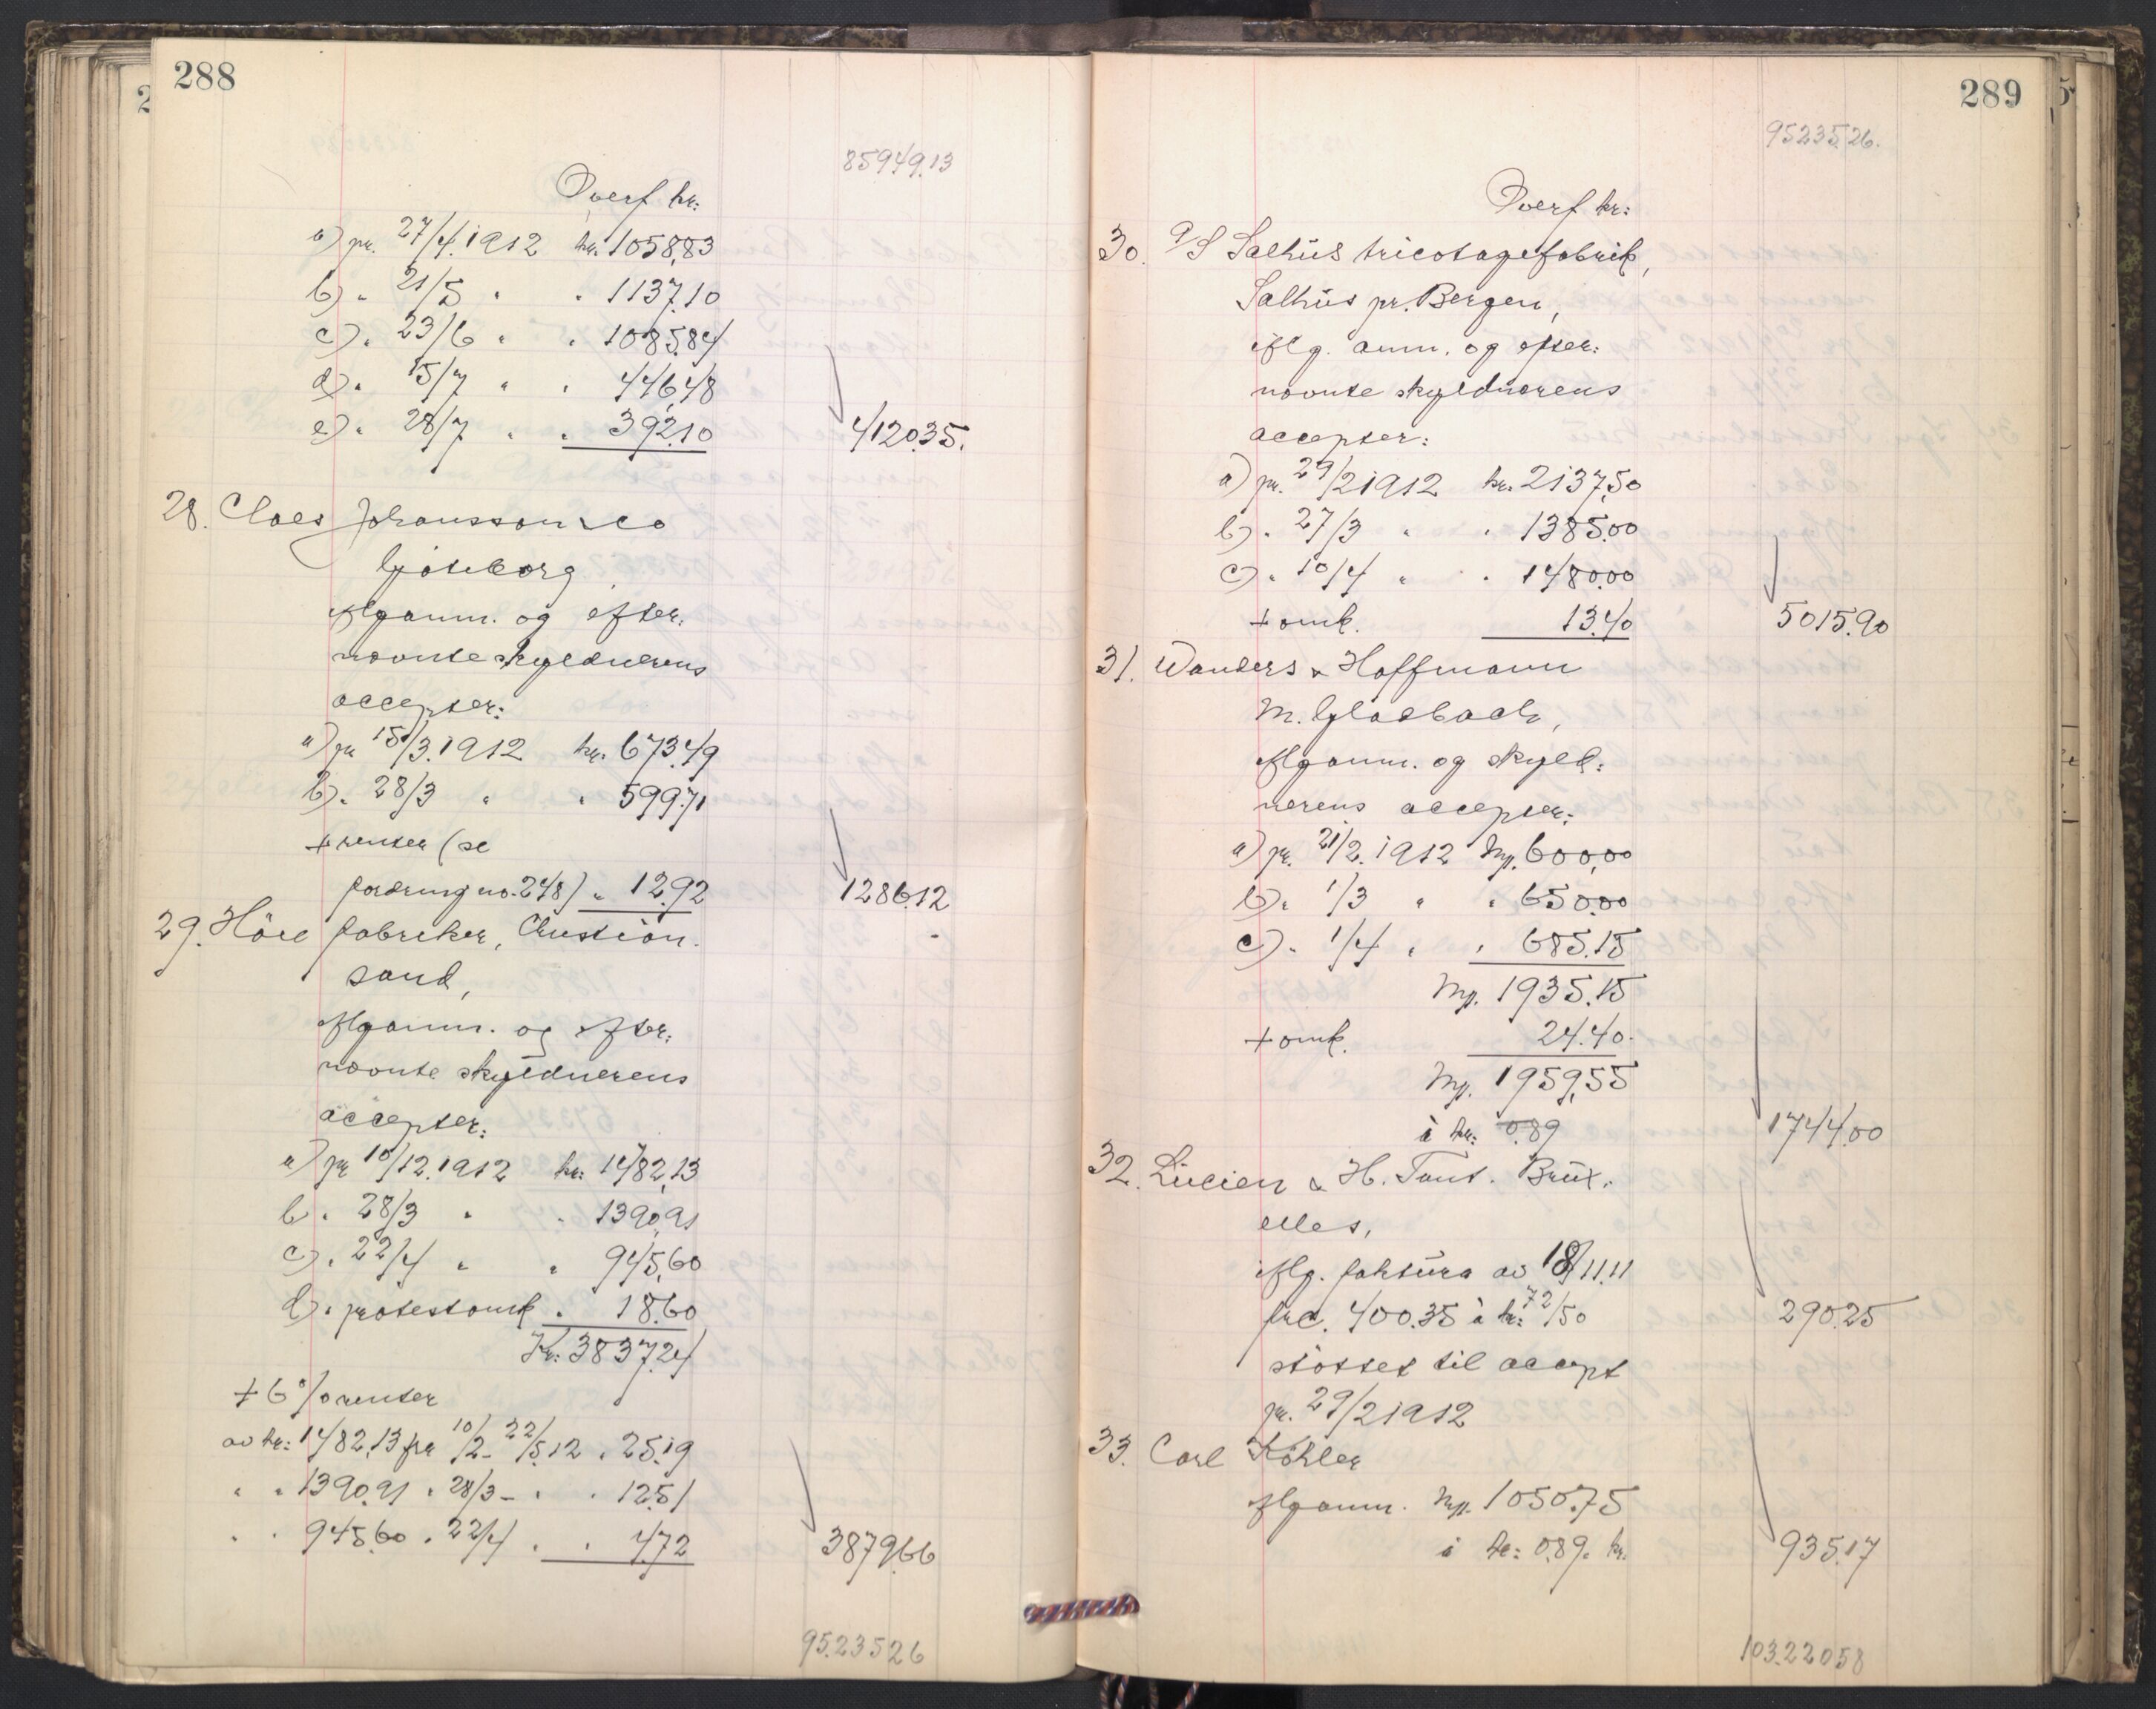 288
85949.13
Overf kr:
a) pr. 27/4.1912 kr. 1058,83
b) " 21/5 " " 1137.10
c) " 23/6 " " 1085.84
d) " 15/7 " " 446,48
e) " 28/7 " " 392.10 4120.35.
28. Claes Johansson & Co
Gjöteborg
iflg anm. og efter:
nævnte skyldnerens
accepter:
a) pr 15/3.1912 kr. 673.49
b) " 28/3 " " 599.71
+ renter (se
fordring no. 248) " 12.92 1286.12
29. Høie fabriker, Christian-
sand,
iflg anm. og efter:
nævnte skyldnerens
accepter:
a) pr 10/12.1912 kr: 1482,13
b " 28/3 " " 1390.91
c) " 22/4 " " 945,60
d) " protestomk " 18.60
Kr: 3837.24
+ 6 % renter
av kr: 1482,13 fra 10/2 - 22/5.12 " 25.19
" " 1390.91 " 28/3 - " " 12.51
" " 945.60 " 22/4 " " 4.72 3879.66
95.235 26
289
95235.26.
Overf kr:
30. A/S Salhus tricotagefabrik,
Salhus pr. Bergen,
iflg. anm. og efter:
nævnte skyldnerens
accepter:
a) pr. 29/2 1912 kr. 2137,50
b) " 27/3 " " 1385.00
c) " 10/4 " " 1480.00
+ omk. 13.40 5015.90
31. Wanders & Hoffmann
M. Gladbach,
iflg anm. og skyld:
nerens accepter:
a) pr. 21/2.1912 Mk. 600,00
b) " 1/3 " " 650.00
c) " 1/4 " " 685.15
Mk. 1935.15
+ omk. 24.40.
Mk. 1959,55
à kr: 0.89 1744.00
32. Lucien & H. Tant. Brux:
elles,
iflg. faktura av 18/11.11
frc. 400.35 à kr: 72/50 290.25
støttet til accept
pr. 29/2 1912
33. Carl Köhler
iflg anm. Mk. 1050.75
à kr: 0.89. kr. 935.17
103.220 58